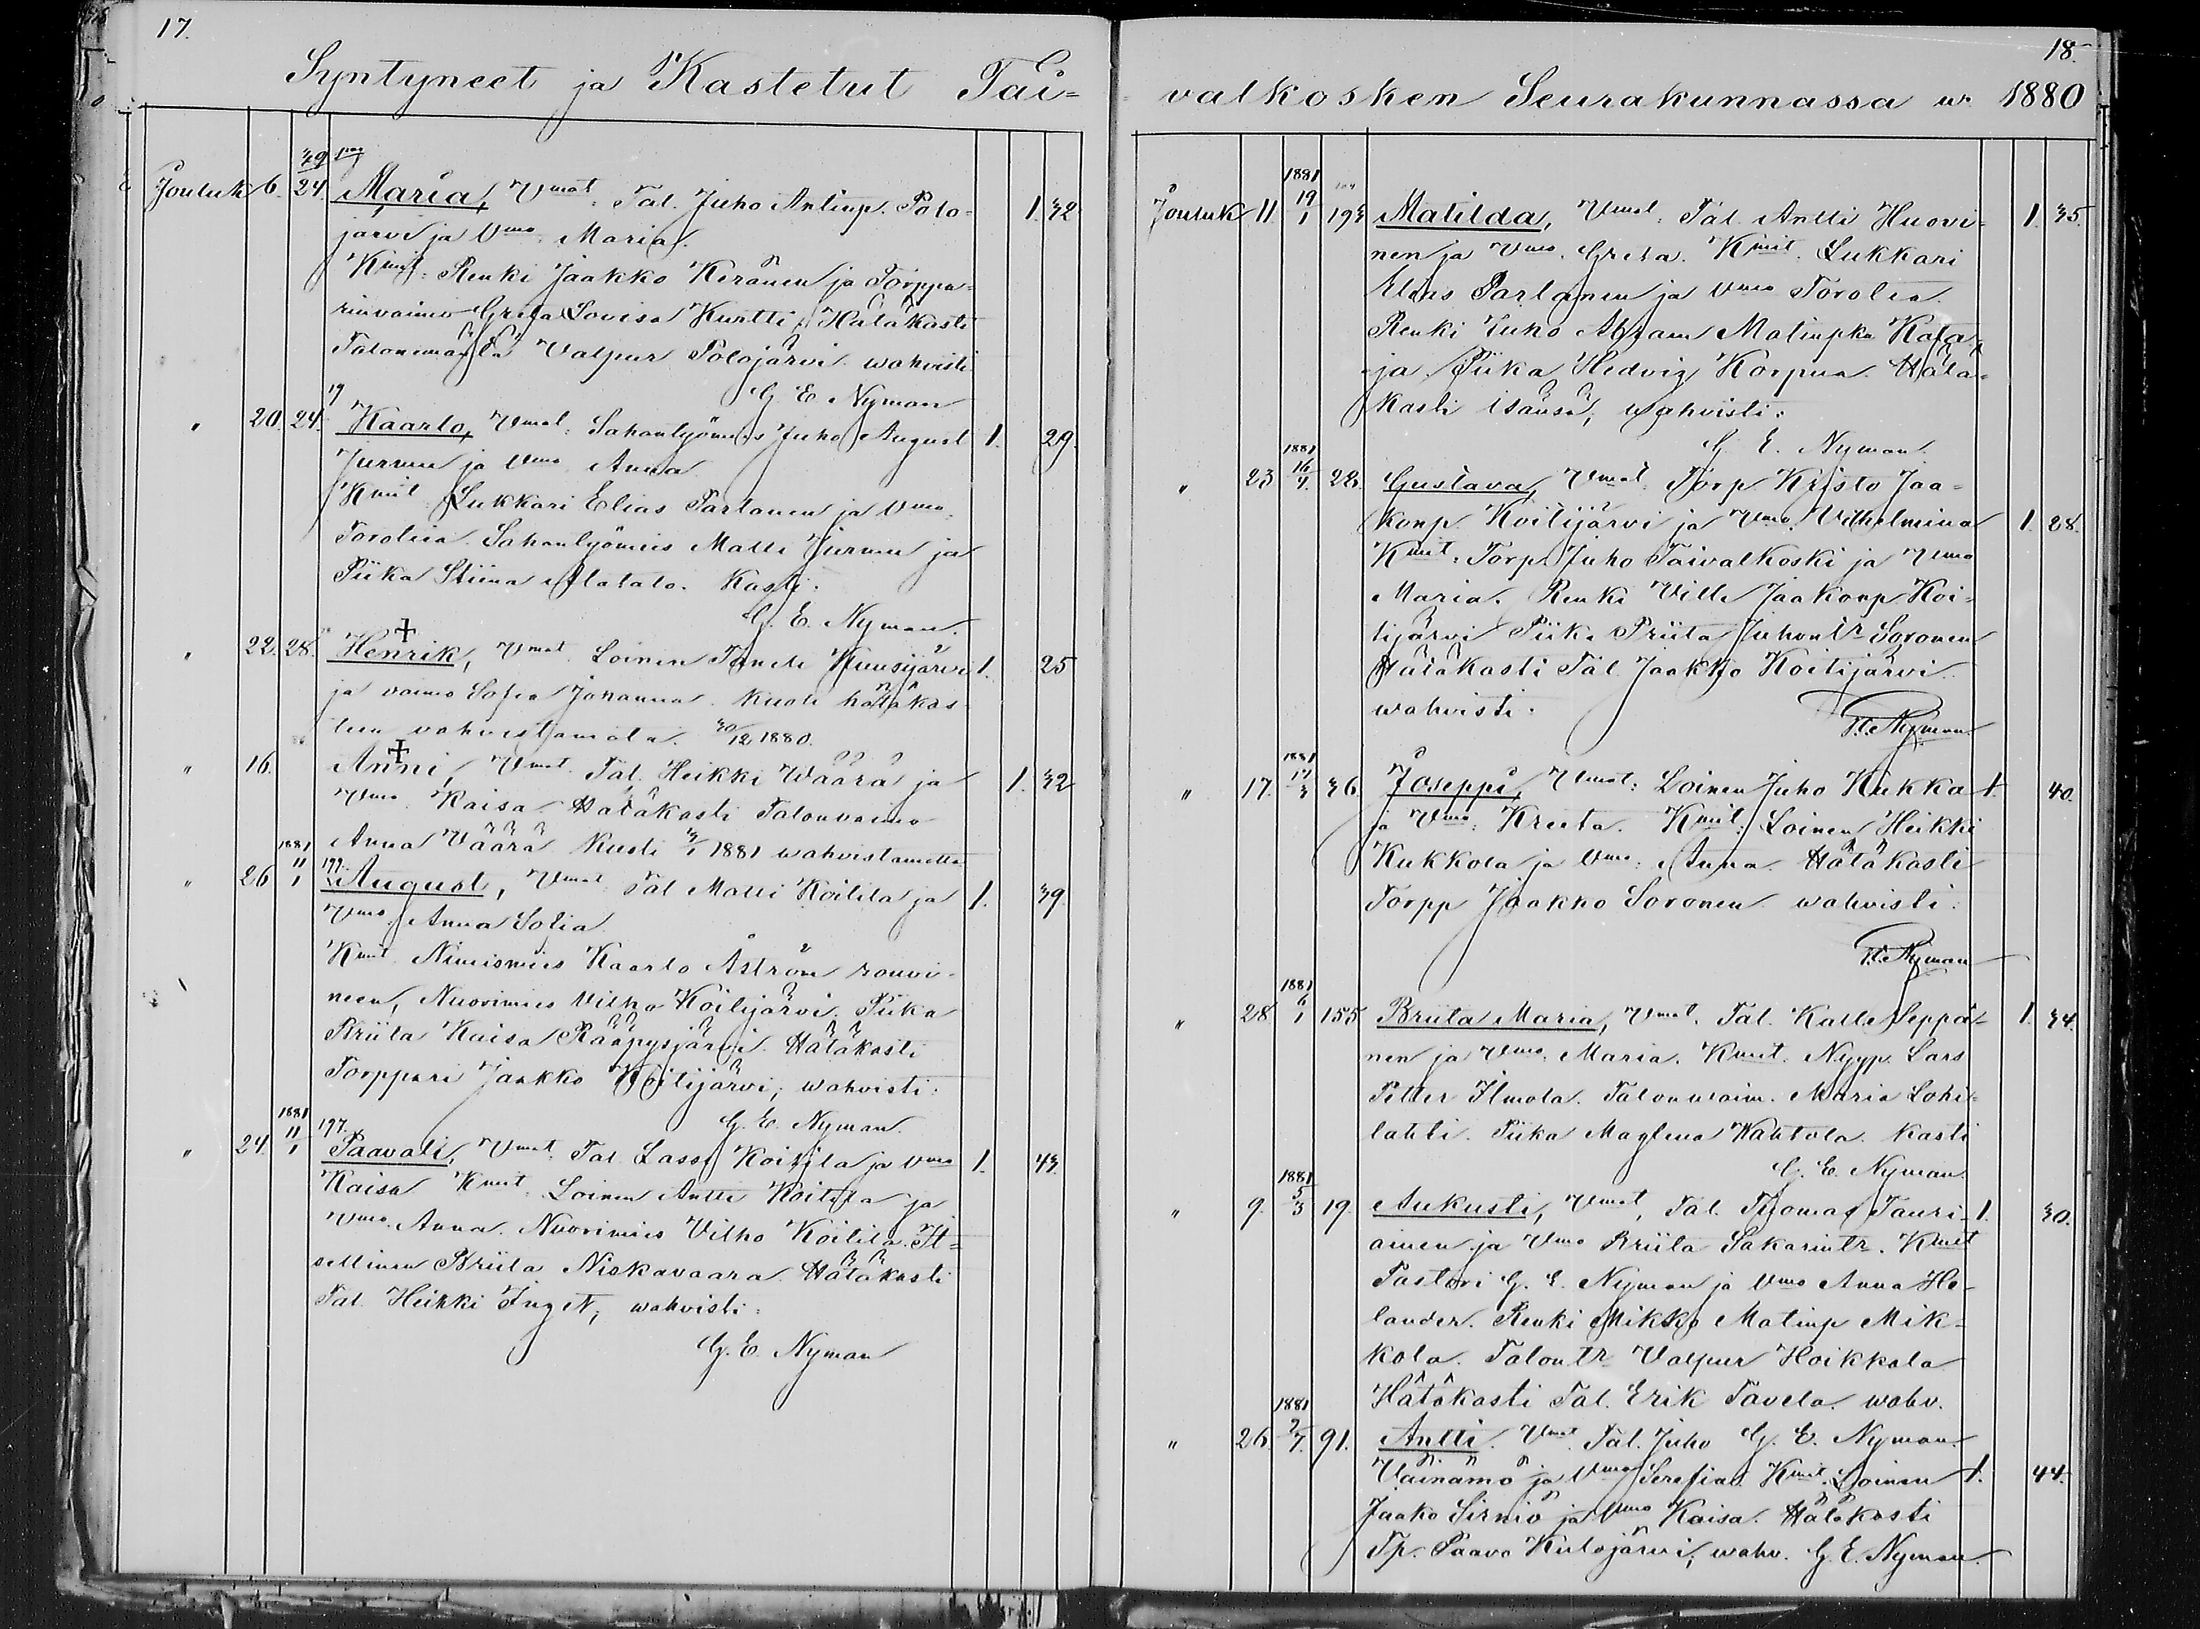 17.
Syntyneet ja Kastetut Tai=
Jouluk 6. 24. Maria, Vmat. Tal. Juho Antinp. Polo= 1. 32
järvi ja Vmo. Maria.
Kmit. Renki Jaakko Keränen ja Torppa=
rinvaimo Greta Lovisa Kurtti, Hätäkasti
Talonemäntä Valpur Polojärvi. wahvisti
G E Nyman
" 20. 24. Kaarlo, Vmat: Sahantyömies Juho August 1. 29.
Jurmu ja Vmo. Anna
Kmit. Lukkari Elias Partanen ja Vmo.
Torolia. Sahantyömies Matti Jurmu ja
Piika Stiina Alatalo. Kasti:
G. E. Nyman.
" 22. 28. Henrik, Vmat. Loinen Kuusijärvi 1. 25
ja vaimo Sofia Johanna. Kuoli hätäkas-
teen vahvistamata. 30/12 1880.
" 16. Anni, Vmat. Tal. Heikki Wäärä ja 1. 32
Vmo. Kaisa Hätäkasti Talonvaimo
Anna Väärä Kuoli 3/1 1881 wahvistametta
1881
" 26 11/1 197. August, Vmat Tal Matti Koitila ja 1. 39.
Vmo. Anna Sofia
Kmit. Nimismies Kaarlo Åström rouvi-
neen, Nuorimies Vilho Koitijärvi, Piika
Briita Kaisa Rääpysjärvi. Hätäkasti
Torppari Jaakko Koitijärvi, wahvisti:
G. E. Nyman.
1881
" 24. 11/1 197. Paavali, Vmat. Tal. Lassi Koitila ja Vmo 1. 43.
Kaisa Kmit. Loinen Antti Koitila ja
Vmo. Anna. Nuorimies Vilho Koitila. It=
sellinen Briita Niskavaara. Hätäkasti
Tal. Heikki Inget, wahvisti:
G. E. Nyman
18.
valkosken Seurakunnassa w. 1880
1881
Jouluk 11 19/1 193 Matilda, Vmat. Tal. Antti Huovi- 1. 35.
nen ja Vmo. Greta. Kmit. Lukkari
Elias Partanen ja Vmo Torolia.
Renki Juho Abram Matinpka Kata
ja Piika Hedvig Korpua. Hätä=
kasti isänsä, wahvisti:
G. E. Nyman.
1881
" 23 22. Gustava, Vmat. Torp. Kristo Jaa=
konp. Koitijärvi ja Vmo. Vilhelmina 1. 28.
Kmit. Torp. Juho Taivalkoski ja Vmo
Maria. Renki Ville Jaakonp. Koi=
tijärvi Piika Priita Juhontr Soronen
Hätäkasti Tal. Jaakko Koitijärvi
wahvisti:
Nyman
1881
" 17. 36. Joseppi, Vmat: Loinen Juho Kukka 1. 40.
ja Vmo: Kreeta. Kmit: Loinen Heikki
Kukkola ja Vmo: Anna. Hätäkasti
Torpp Jaakko Soronen wahvisti:
Nyman
1881
" 28 6/1 155 Briita Maria, Vmat. Tal. Kalle Seppä- 1. 34.
nen ja Vmo. Maria. Kmit. Nyyp. Lars
Petter Ilmola. Talonwaim. Maria Lohi=
lahti. Piika Maglena Wahtola. Kasti
G. E. Nyman.
1881
" 9. 5/3 19. Aukusti, Vmat, Tal. Thomas Tauri- 1. 30.
ainen ja Vmo Briita Sakarintr. Kmit
Pastori G. E. Nyman ja Vmo Anna He-
lander. Renki Mikko Matinp Mik=
kola. Talontr Valpur Hoikkala
Hätäkasti Tal. Erik Tavela. wahv.
1881
" 26. 91. Antti. Vmat. Tal. Juho G. E. Nyman.
Väinämö ja Vmo Serafia. Kmit. Loinen 1. 44.
Jaako Sirniö ja Vmo Kaisa. Hätäkasti
Tp. Paavo Kulojärvi, wahv. G. E. Nyman.